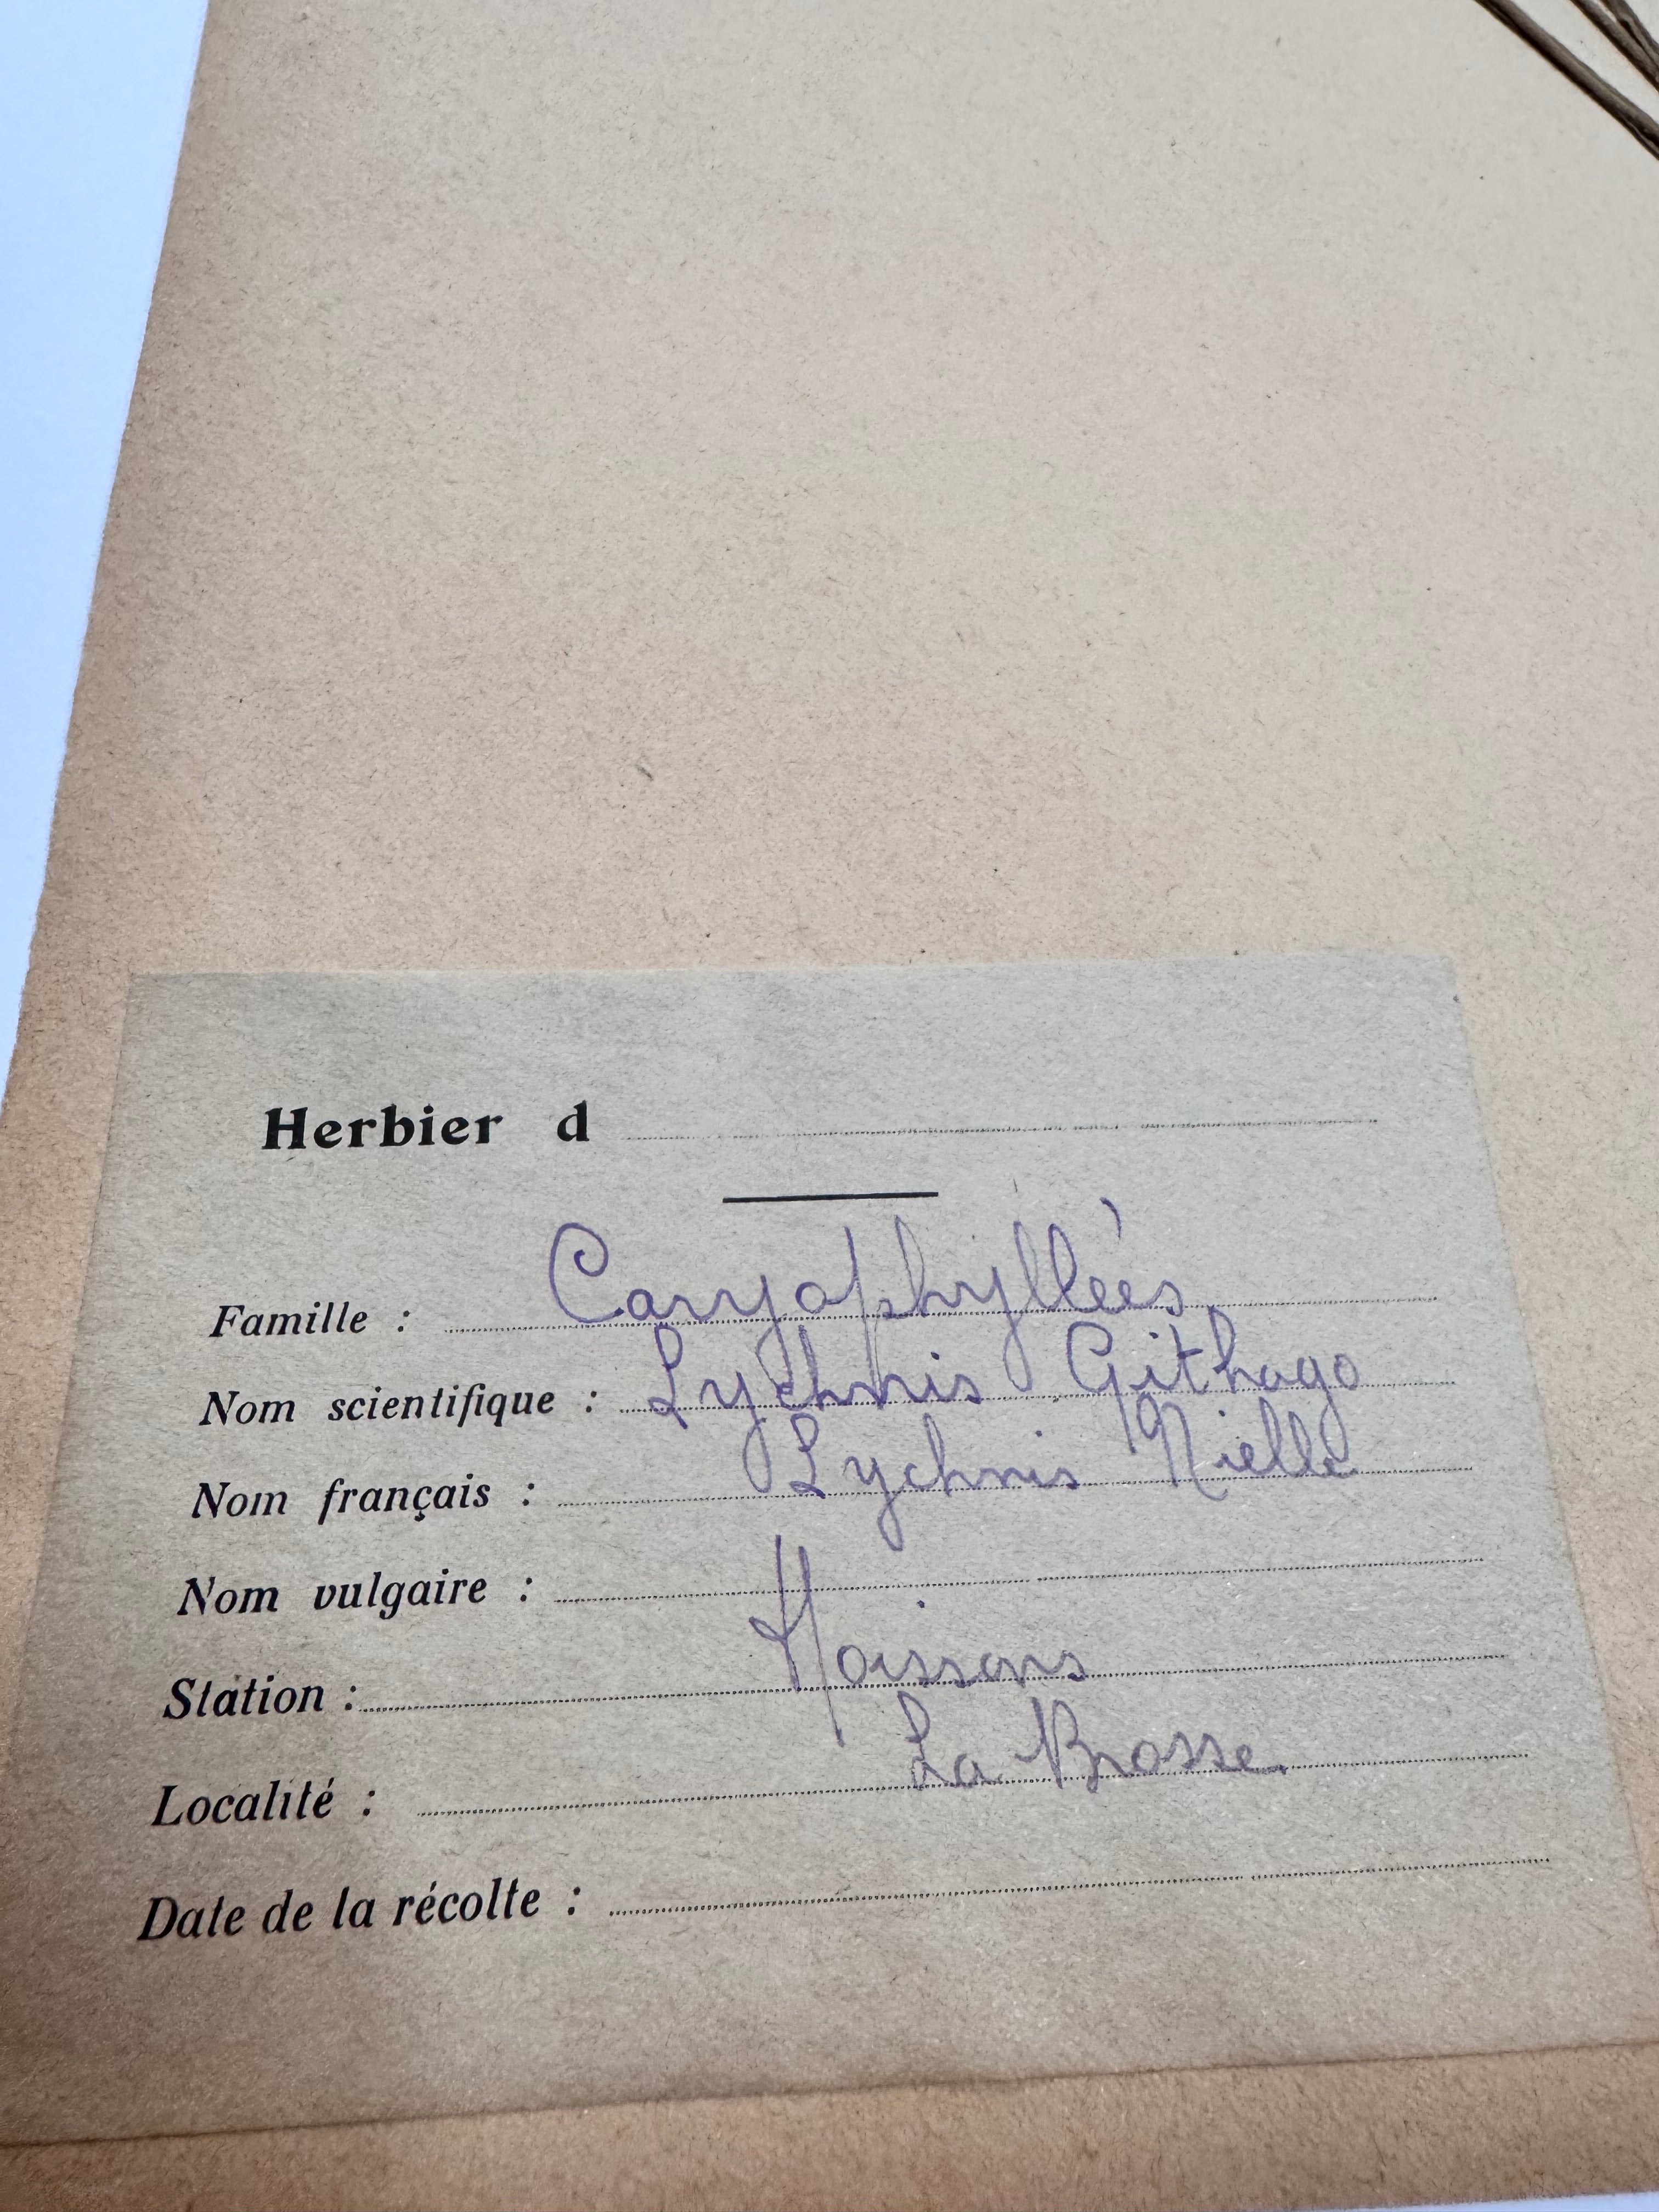 Herbier d
Famille : Caryophyllées.
Nom scientifique : Lychnis Githago
Nom français : Lychnis Nielle
Nom vulgaire :
Station : Moissons
Localité : La Brosse.
Date de la récolte :